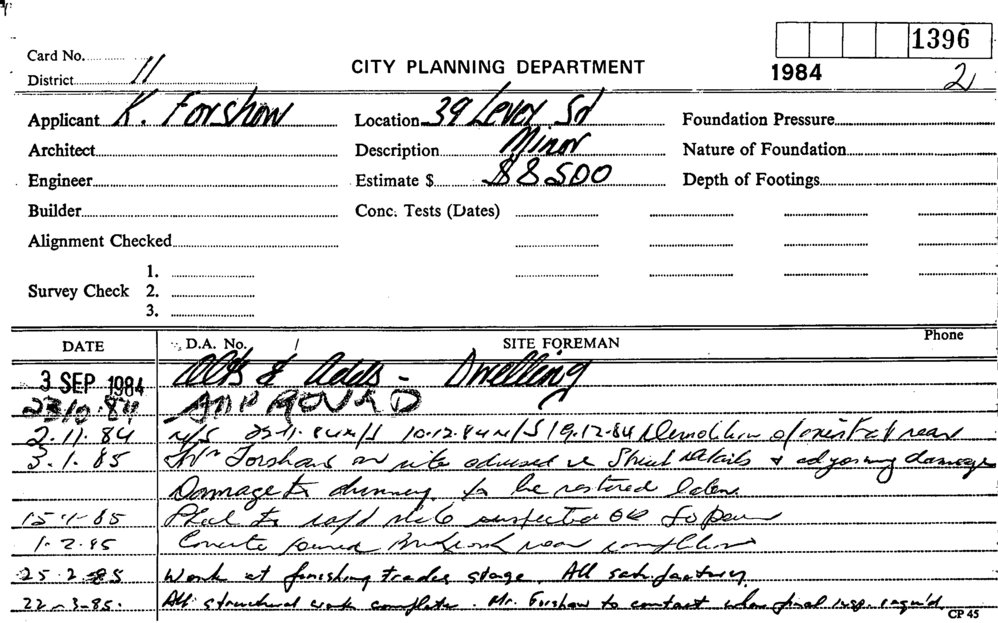 1396
Card No.
District 11
CITY PLANNING DEPARTMENT
1984
2
Applicant K. Forshaw
Location 39 Lever St
Foundation Pressure
Architect
Description Minor
Nature of Foundation
Engineer
Estimate $ $8500
Depth of Footings
Builder
Conc. Tests (Dates)
Alignment Checked
1.
Survey Check 2.
3.
DATE
D.A. No. /
SITE FOREMAN
Phone
3 SEP 1984 Alts & Adds - Dwelling
23/0.84 APPROVED
2.11.84 N/S 10.12.84 N/S 19.12.84 Demolition of exist at rear
3.1.85 Mr Forshaw on site advised re Struct details & adjoining damage
Damage to to be restored later
15-1-85 to
1.2.85 Concrete poured Brickwork rear
25.2.85 Work at finishing trades stage. All satisfactory
22-3-85. All structural work complete. Mr. Forshaw to contact when final insp. requ'd.
CP 45